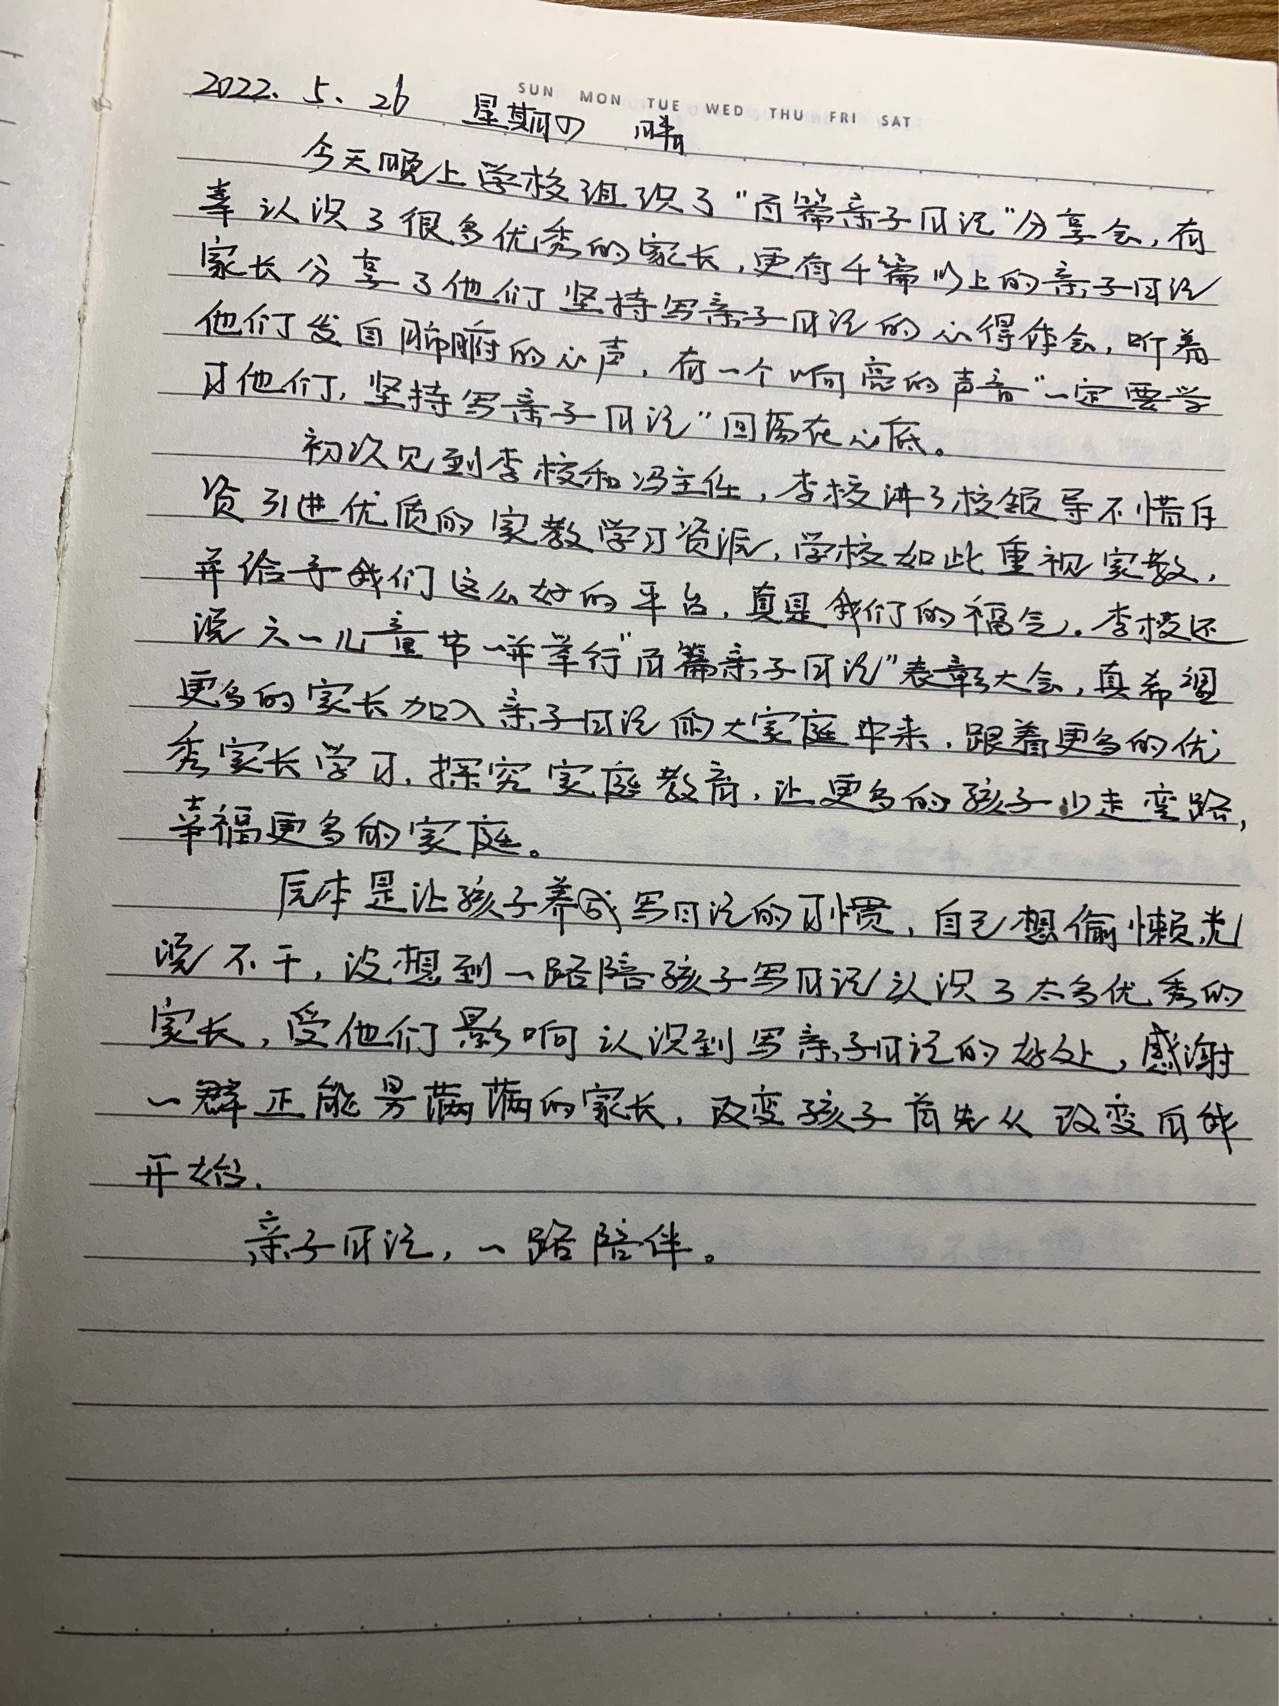 SUN MON TUE WED THU FRI SAT
2022. 5. 26 星期四 晴
今天晚上学校组织了“百篇亲子日记”分享会,有
幸认识了很多优秀的家长,更有千篇以上的亲子日记
家长分享了他们坚持写亲子日记的心得体会,听着
他们发自肺腑的心声,有一个响亮的声音“一定要学
习他们,坚持写亲子日记”回荡在心底。
初次见到李校和冯主任,李校讲了校领导不惜斥
资引进优质的家教学习资源,学校如此重视家教,
并给予我们这么好的平台,真是我们的福气.李校还
说六一儿童节一并举行“百篇亲子日记”表彰大会,真希望
更多的家长加入亲子日记的大家庭中来,跟着更多的优
秀家长学习,探究家庭教育,让更多的孩子少走弯路,
幸福更多的家庭。
原本是让孩子养成写日记的习惯,自己想偷懒光
说不干,没想到一路陪孩子写日记认识了太多优秀的
家长,受他们影响认识到写亲子日记的好处,感谢
一群正能量满满的家长,改变孩子首先从改变自我
开始.
亲子日记,一路陪伴。